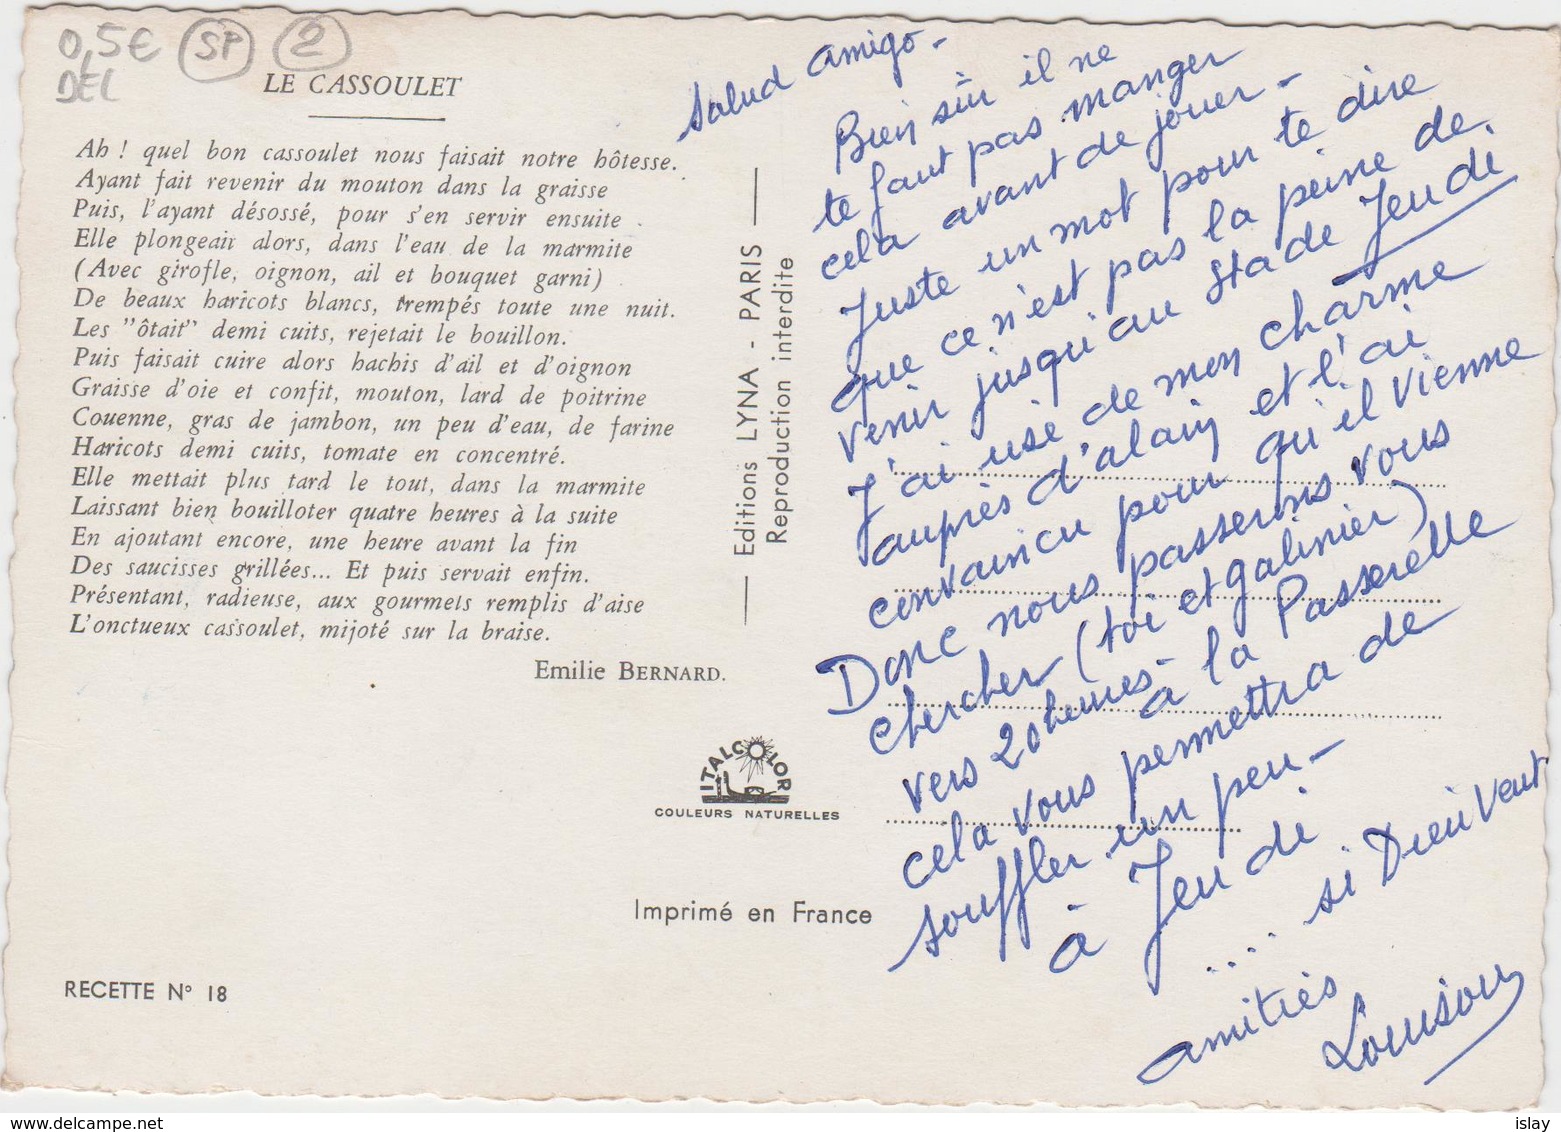 0,5€ SP 2
DEL
LE CASSOULET
Ah ! quel bon cassoulet nous faisait notre hôtesse.
Ayant fait revenir du mouton dans la graisse
Puis, l'ayant désossé, pour s'en servir ensuite
Elle plongeait alors, dans l'eau de la marmite
(Avec girofle, oignon, ail et bouquet garni)
De beaux haricots blancs, trempés toute une nuit.
Les "ôtait" demi cuits, rejetait le bouillon.
Puis faisait cuire alors hachis d'ail et d'oignon
Graisse d'oie et confit, mouton, lard de poitrine
Couenne, gras de jambon, un peu d'eau, de farine
Haricots demi cuits, tomate en concentré.
Elle mettait plus tard le tout, dans la marmite
Laissant bien bouilloter quatre heures à la suite
En ajoutant encore, une heure avant la fin
Des saucisses grillées... Et puis servait enfin.
Présentant, radieuse, aux gourmets remplis d'aise
L'onctueux cassoulet, mijoté sur la braise.
Emilie BERNARD.
ITALCOLOR
COULEURS NATURELLES
Imprimé en France
RECETTE N° 18
Editions LYNA - PARIS
Reproduction interdite
Salud amigo -
Bien sûr il ne
te faut pas manger
cela avant de jouer -
Juste un mot pour te dire
que ce n'est pas la peine de
venir jusqu'au stade Jeudi
J'ai usé de mon charme
auprès d'alain et l'ai
convaincu pour qu'il vienne
Donc nous passerons vous
chercher (toi et galinier)
vers 20 heures - à la Passerelle
cela vous permettra de
souffler un peu -
à Jeudi
.... si Dieu veut
amitiés
Louison
www.delcampe.net
islay